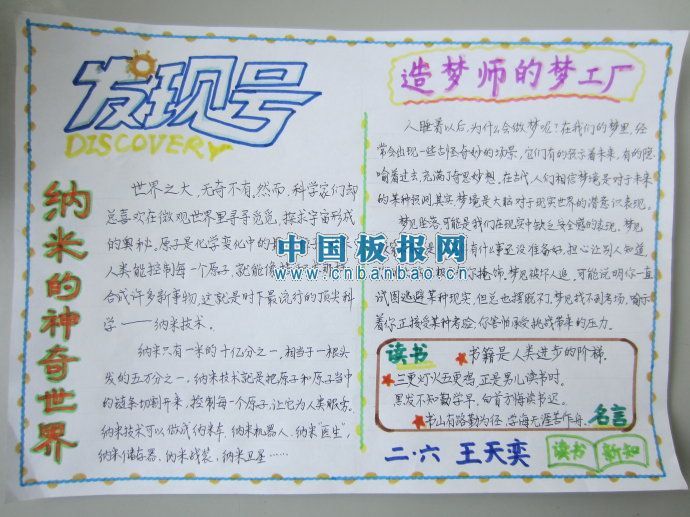 发现号
DISCOVERY
纳米的神奇世界
世界之大,无奇不有。然而,科学家们却
总喜欢在微观世界里寻寻觅觅,探求宇宙形成
的奥秘。原子是化学变化中的最
人类能控制每一个原子,就能像
合成许多新事物,这就是时下最流行的顶尖科
学——纳米技术。
纳米只有一米的十亿分之一,相当于一根头
发的五万分之一。纳米技术就是把原子和原子当中
的链条切割开来,控制每一个原子,让它为人类服务。
纳米技术可以做成纳米车、纳米机器人、纳米"医生"、
纳米储存器、纳米战装、纳米卫星……
造梦师的梦工厂
人睡着以后,为什么会做梦呢?在我们的梦里,经
常会出现一些古怪奇妙的场景,它们有的预示着未来,有的隐
喻着过去,充满了奇思妙想。在古代人们相信梦境是对于未来
的某种预测,其实梦境是大脑对于现实世界的潜意识表现。
梦见坠落,可能是我们在现实中缺乏安全感的表现。梦见
有什么事还没准备好,担心让别人知道,
掩饰。梦见被坏人追,可能说明你一直
试图逃避某种现实,但总也摆脱不了。梦见找不到考场,喻示
着你正接受某种考验,你害怕承受挑战带来的压力。
读书
书籍是人类进步的阶梯。
三更灯火五更鸡,正是男儿读书时。
黑发不知勤学早,白首方悔读书迟。
书山有路勤为径,学海无涯苦作舟。
名言
二·六 王天奕
读书 新知
中国板报网
www.cnbanbao.cn